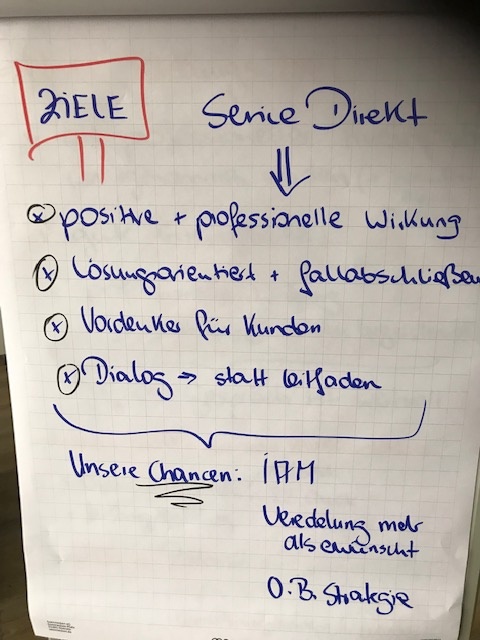 ZIELE
Service Direkt
positive + professionelle Wirkung
Lösungsorientiert + fallabschließen
Vordenker für Kunden
Dialog → statt Leitfaden
Unsere Chancen:
Veredelung mehr
als erwünscht
O.B. Strategie